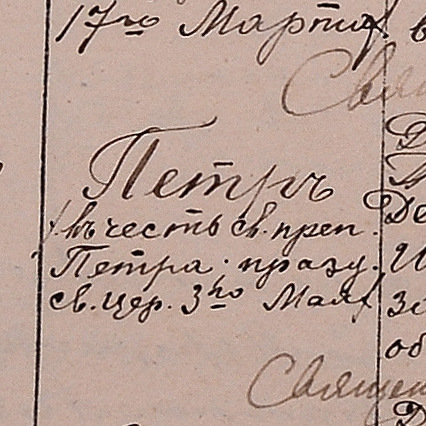 17го Марта). в
Свя
Петръ
(въ честь св. преп. Де
Петра; празд. И
св. цер. 3го Мая) Зо
об
Священ